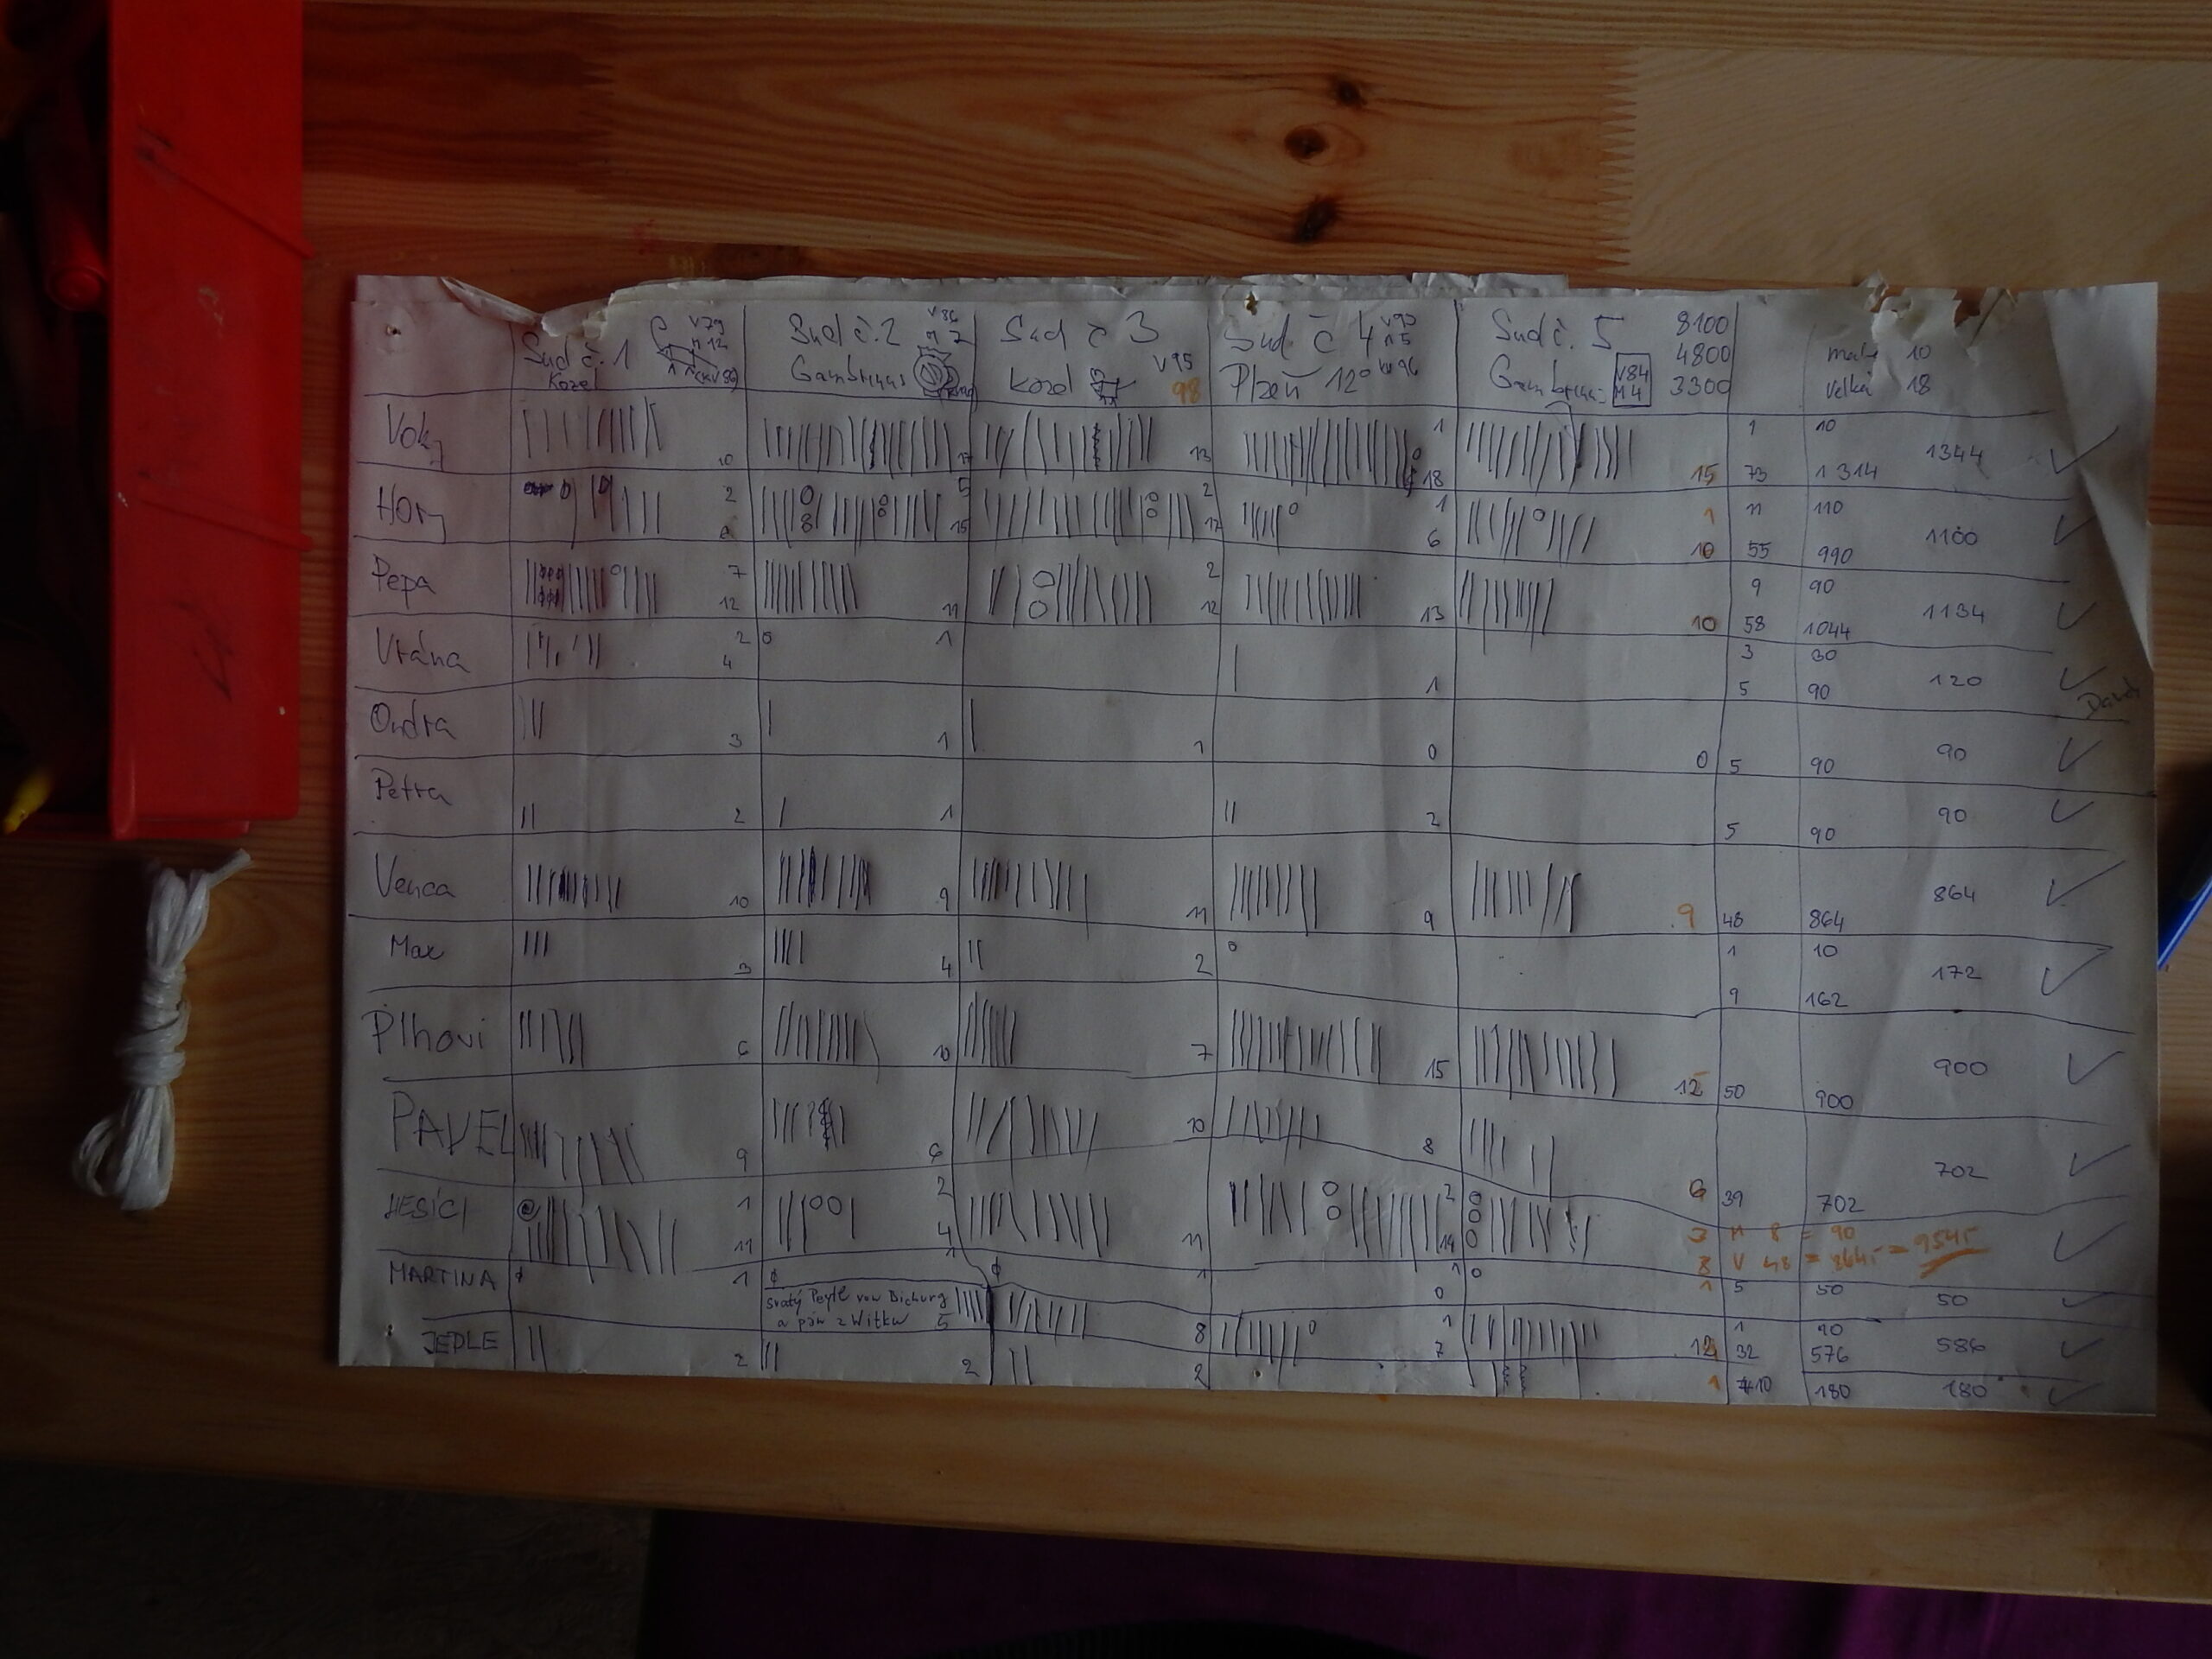 Sud č. 1 V79 M 12
Kozel
Sud č. 2 V86 M 7
Gambrinus
Sud č 3 V95
Kozel 98
Sud č 4 V90 M5
Plzeň 12° V96
Sud č. 5 8100
V84 4800
Gambrinus M4 3300
malé 10
velké 18
Voky 10 17 13 1 18 15 1 10
73 1314 1344
Hory 2 5 2 1 1 11 110
15 12 6 10 55 990 1100
Pepa 7 2 9 90
12 11 12 13 10 58 1044 1134
Vrána 2 1 3 30
4 1 5 90 120
Ondra 3 1 1 0 0 5 90 90
Petra 2 1 2 5 90 90
Venca 10 9 11 9 9 48 864 864
Max 3 4 2 1 10
9 162 172
Plhovi 6 10 7 15 12 50 900 900
PAVEL 9 6 10 8 6 39 702 702
HESÍCI 1 2 2 3 M 8 = 90
11 4 11 14 8 V 48 = 864 = 954
MARTINA 1 1 1 1 1 5 50 50
0
svatý
a pán z Witkw 5 8 1 7 12 1 10
32 576 586
JEDLE 2 2 2 1 10 180 180